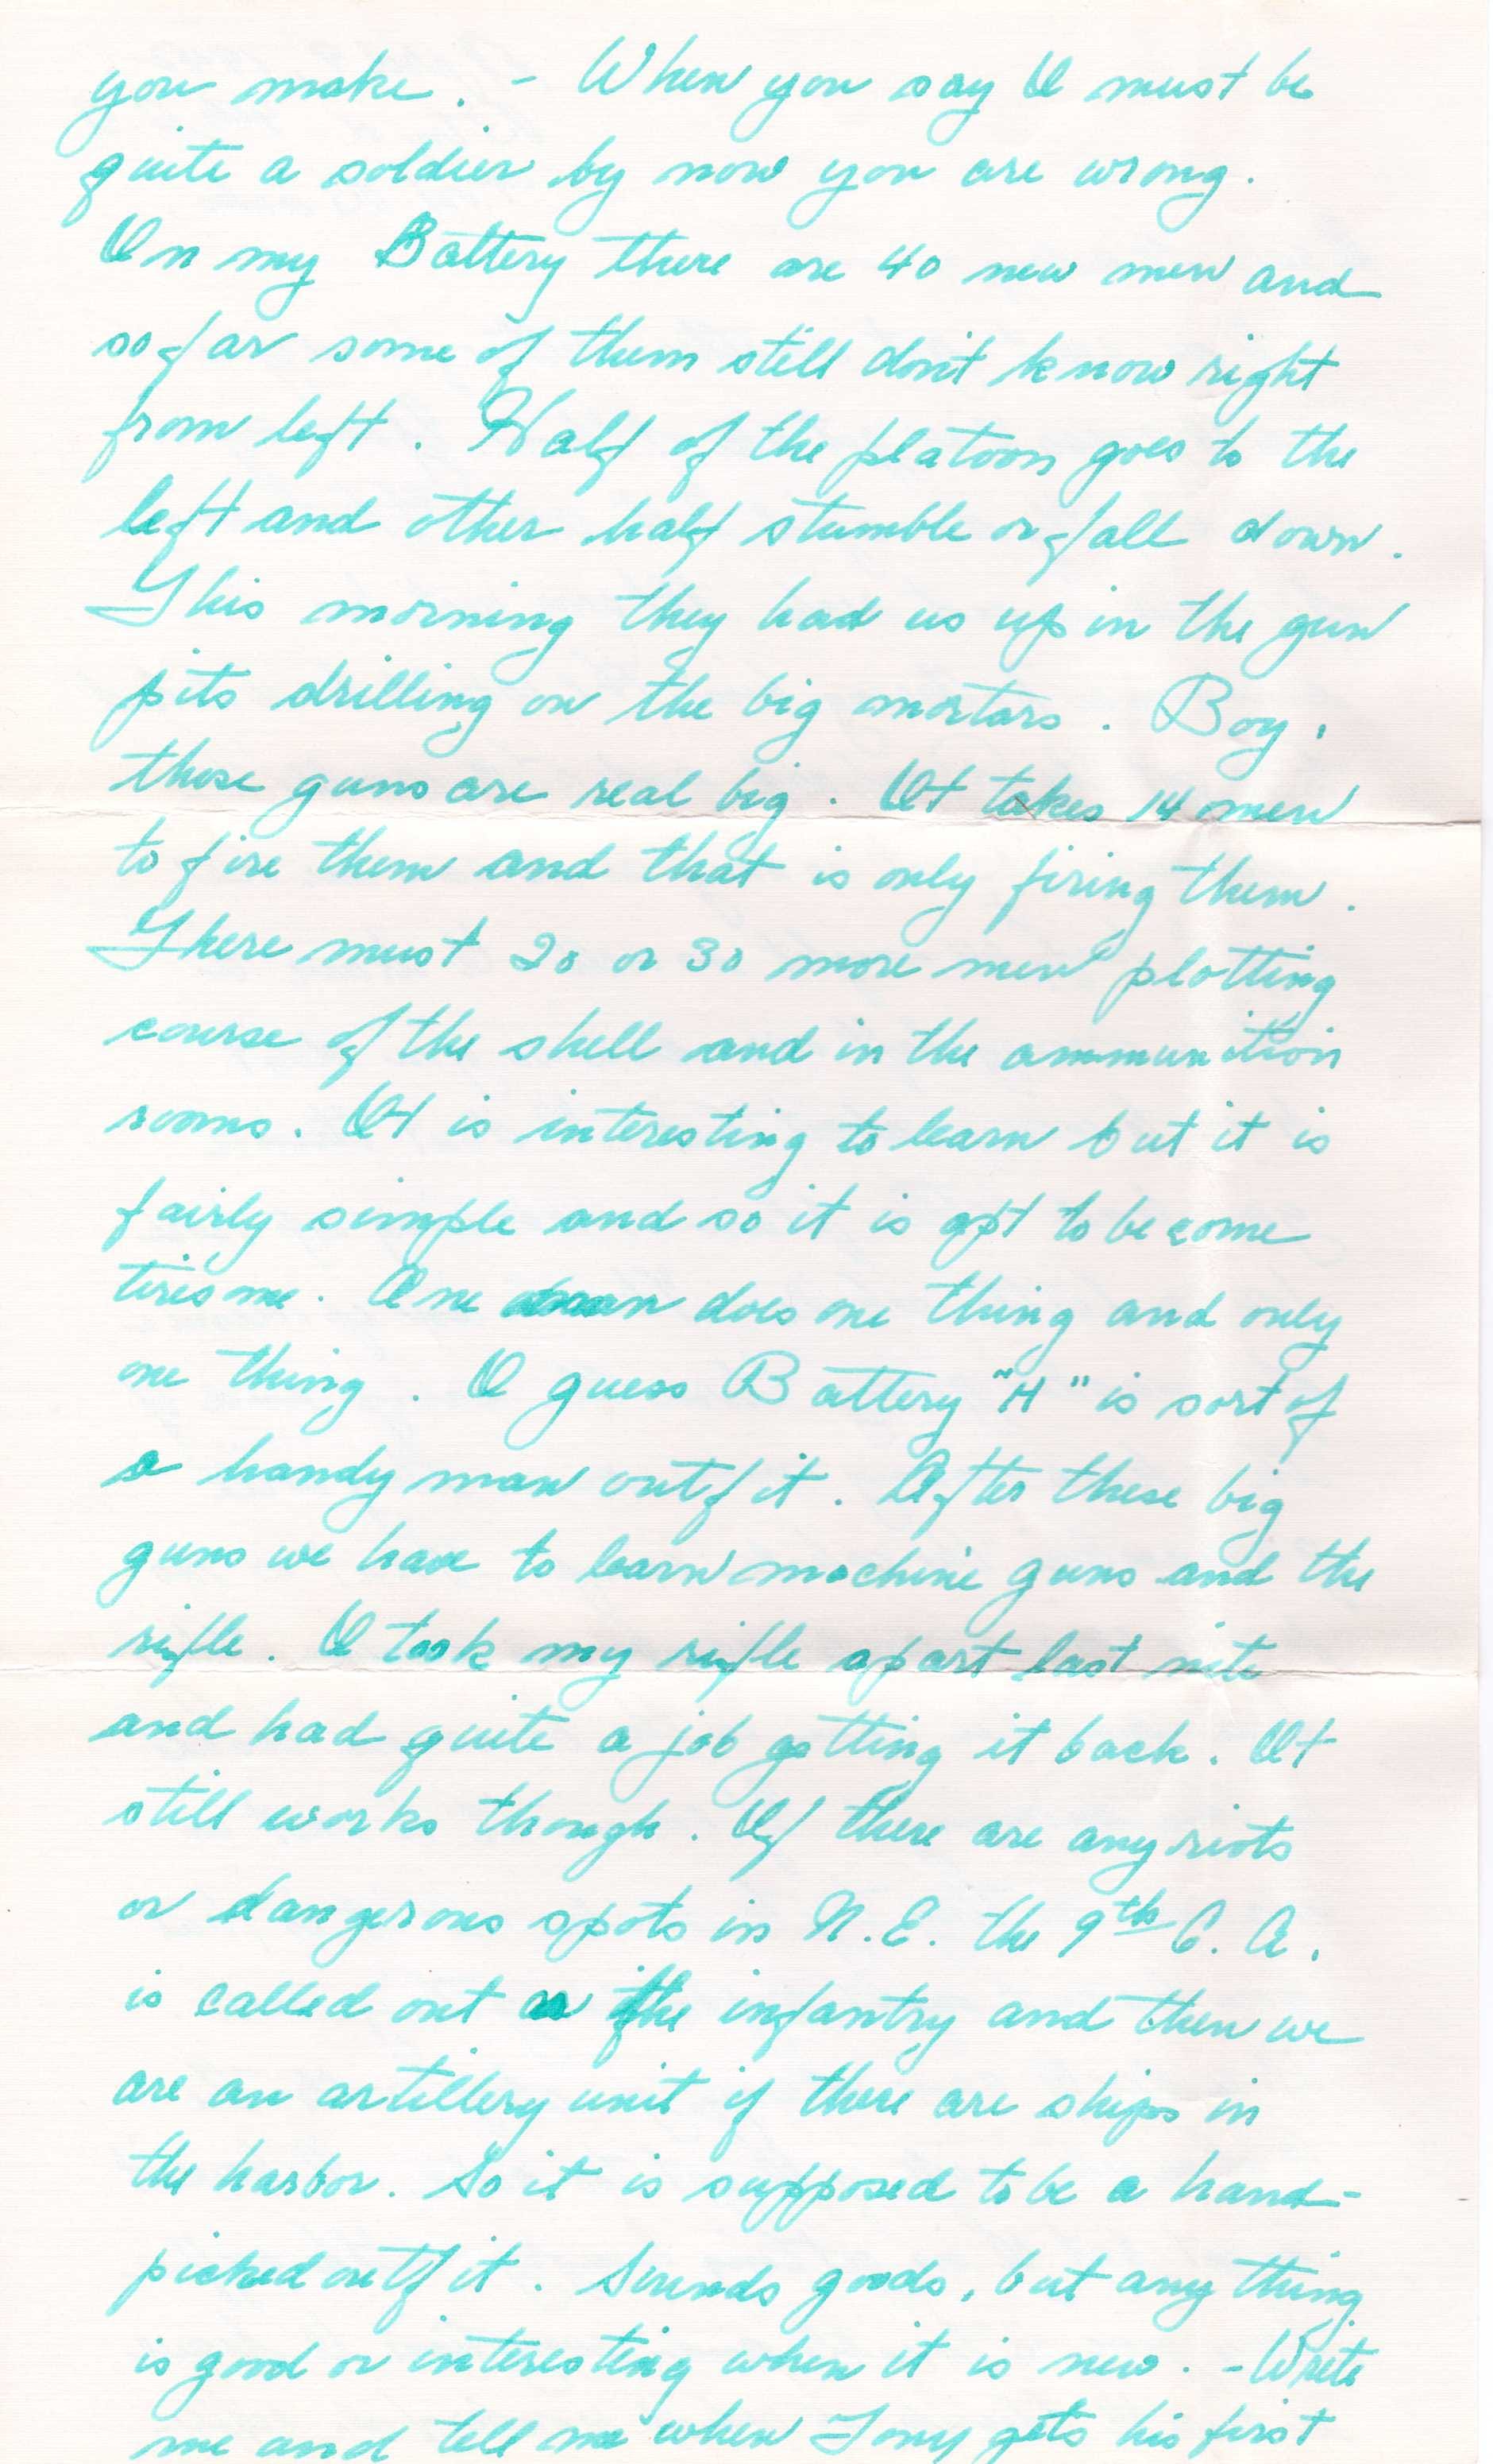 you make. - When you say I must be
quite a soldier by now you are wrong.
In my Battery there are 40 new men and
so far some of them still don't know right
from left. Half of the platoon goes to the
left and other half stumble or fall down.
This morning they had us up in the gun
pits drilling on the big mortars. Boy,
those guns are real big. It takes 14 men
to fire them and that is only firing them.
There must 20 or 30 more men plotting
course of the shell and in the ammunition
rooms. It is interesting to learn but it is
fairly simple and so it is apt to become
tiresome. One man does one thing and only
one thing. I guess Battery "H" is sort of
a handy man outfit. After these big
guns we have to learn machine guns and the
rifle. I took my rifle apart last nite
and had quite a job getting it back. It
still works though. If there are any riots
or dangerous spots in N.E. the 9th C. A.
is called out as the infantry and then we
are an artillery unit if there are ships in
the harbor. So it is supposed to be a hand-
picked outfit. Sounds goods, but any thing
is good or interesting when it is new. - Write
me and tell me when Tony gets his first